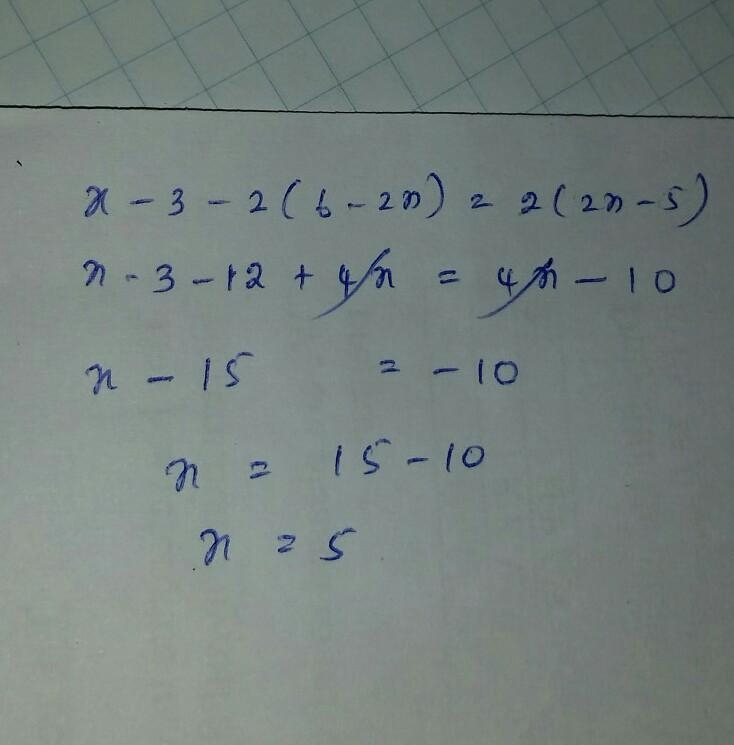 x - 3 - 2(6 - 2x) = 2(2x - 5)
x - 3 - 12 + 4x = 4x - 10
x - 15 = - 10
x = 15 - 10
x = 5